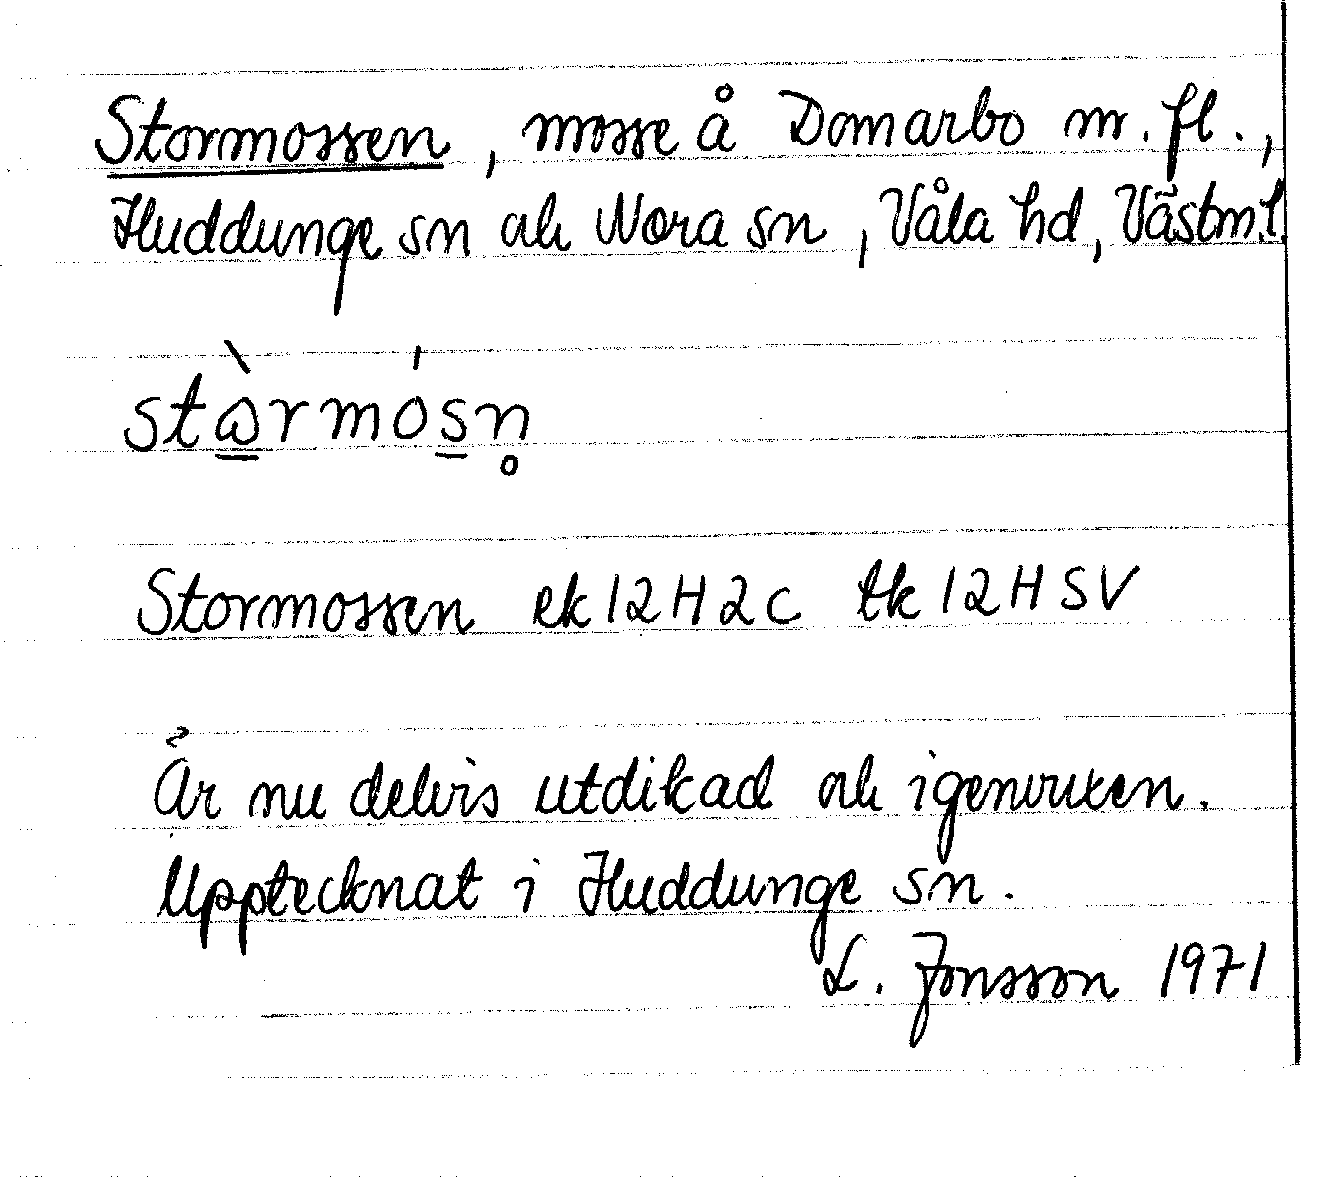 Stormossen, mosse å Domarbo m.fl.,
Huddunge sn ah Nora sn, Våla hd, Västm.l.
stɷ̲̀rmós̲n̥
Stormossen ek 12H2c tk 12HSV
Är nu delvis utdikad ah igenvuxen.
Upptecknat i Huddunge sn.
L. Jonsson 1971